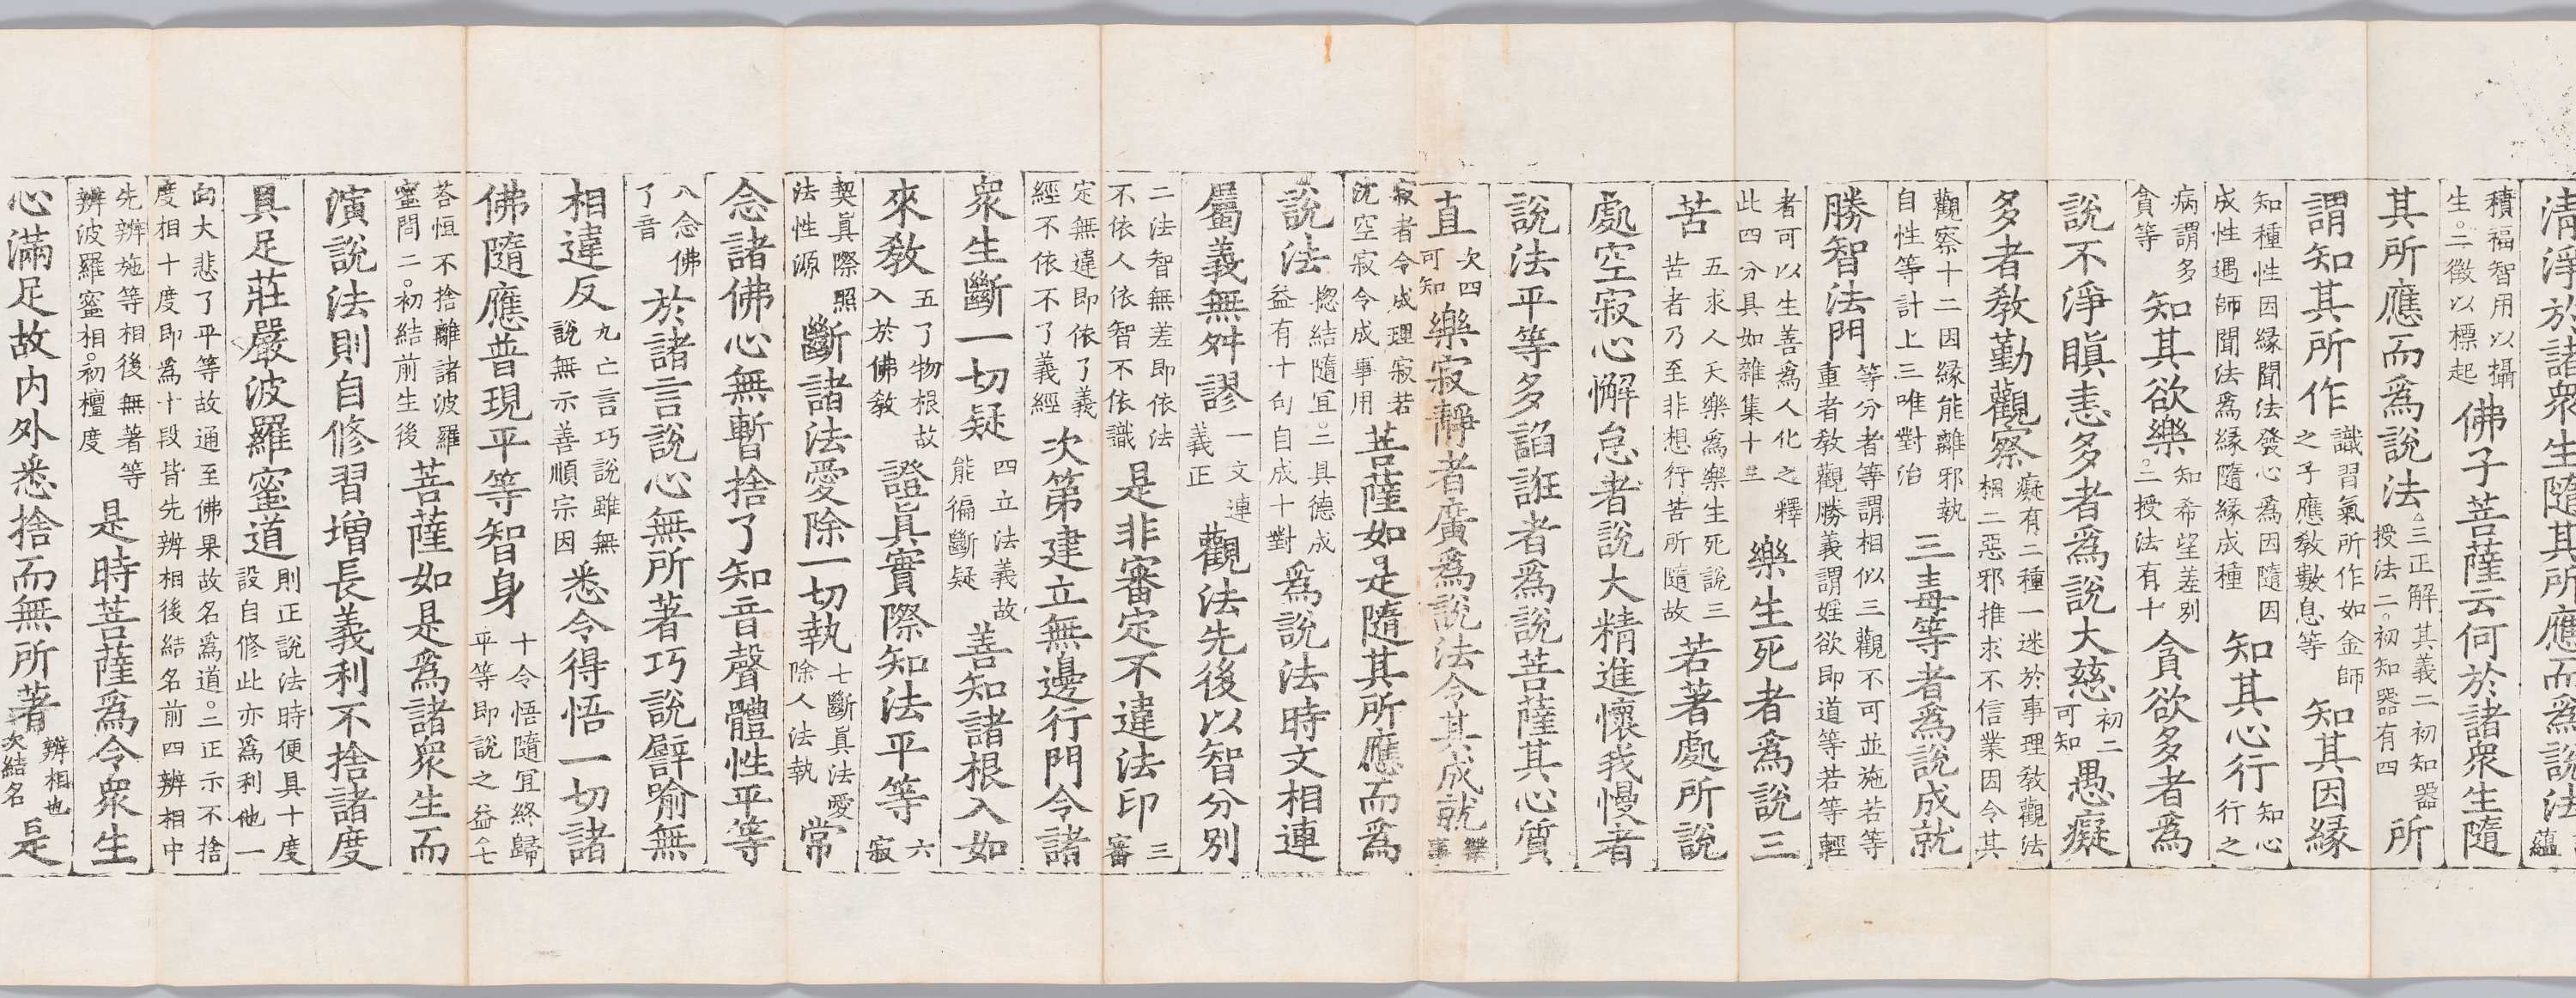 清淨於諸衆生隨其所應而爲說法蘊
積福智用以攝生○二徵以標起佛子菩薩云何於諸衆生隨
其所應而爲說法△三正解其義二初知器授法二○初知器有四所
謂知其所作識習氣所作如金師之子應敎數息等知其因緣
知種性因緣聞法發心爲因隨因成性遇師聞法爲緣隨緣成種知其心行知心行之
病謂多貪等知其欲樂知希望差別○二授法有十貪欲多者爲
說不淨瞋恚多者爲說大慈初二可知愚癡
多者敎勤觀察癡有二種一迷於事理敎觀法相二惡邪推求不信業因令其
觀察十二因緣能離邪執自性等計上三唯對治三毒等者爲說成就
勝智法門等分者等謂相似三觀不可並施若等重者敎觀勝義謂婬欲即道等若等輕
者可以生善爲人化之釋此四分具如雜集十三樂生死者爲說三
苦五求人天樂爲樂生死說三苦者乃至非想行苦所隨故若著處所說
處空寂心懈怠者說大精進懷我慢者
說法平等多諂誑者爲說菩薩其心質
直次四可知樂寂靜者廣爲說法令其成就樂事
寂者令成理寂若沈空寂令成事用菩薩如是隨其所應而爲
說法揔結隨宜○二具德成益有十句自成十對爲說法時文相連
屬義無舛謬一文連義正觀法先後以智分別
二法智無差即依法不依人依智不依識是非審定不違法印三審
定無違即依了義經不依不了義經次第建立無邊行門令諸
衆生斷一切疑四立法義故能徧斷疑善知諸根入如
來敎五了物根故入於佛敎證眞實際知法平等六寂
契眞際照法性源斷諸法愛除一切執七斷眞法愛除人法執常
念諸佛心無暫捨了知音聲體性平等
八念佛了音於諸言說心無所著巧說譬喻無
相違反九亡言巧說雖無說無示善順宗因悉令得悟一切諸
佛隨應普現平等智身十令悟隨宜終歸平等即說之益△七
荅恒不捨離諸波羅蜜問二○初結前生後菩薩如是爲諸衆生而
演說法則自修習增長義利不捨諸度
具足莊嚴波羅蜜道則正說法時便具十度設自修此亦爲利他一
向大悲了平等故通至佛果故名爲道○二正示不捨度相十度即爲十段皆先辨相後結名前四辨相中
先辨施等相後無著等辨波羅蜜相○初檀度是時菩薩爲令衆生
心滿足故内外悉捨而無所著辨相也次結名是